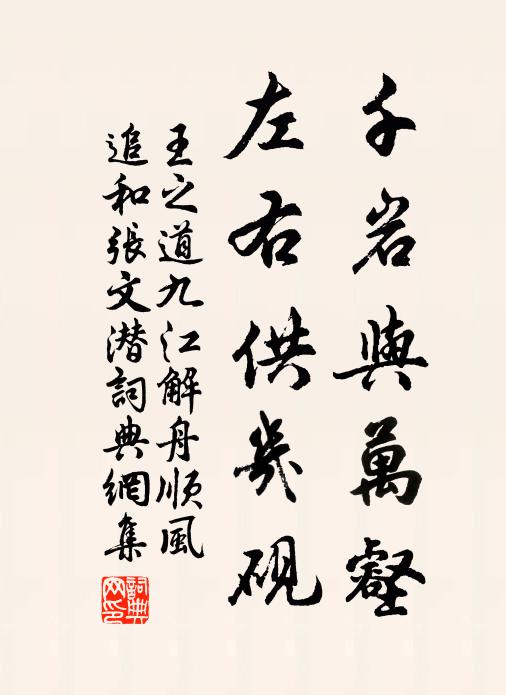 千岩與萬壑
左右供几硯
王之道九江解舟順風
追和張文潛詞典網集